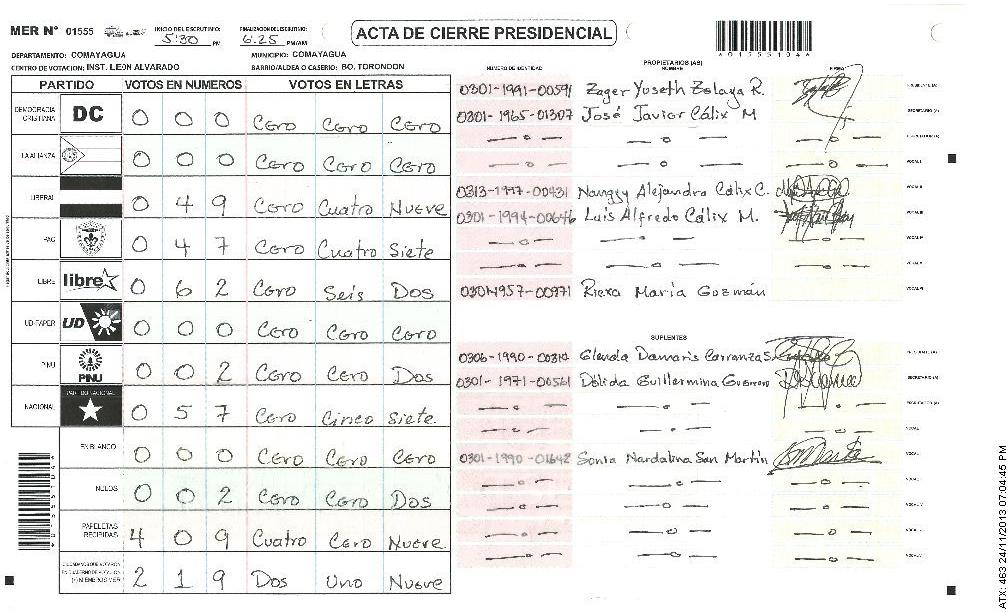 MER N° 01555 INICIO DEL ESCRUTINIO: 5:30 PM FINALIZACION DEL ESCRUTINIO: 6:25 PM/AM ACTA DE CIERRE PRESIDENCIAL A01555104A
DEPARTAMENTO: COMAYAGUA MUNICIPIO: COMAYAGUA
CENTRO DE VOTACION: INST. LEON ALVARADO BARRIO/ALDEA O CASERIO: BO. TORONDON
PARTIDO VOTOS EN NUMEROS VOTOS EN LETRAS
DEMOCRACIA CRISTIANA DC 0 0 0 Cero Cero Cero
LA ALIANZA 0 0 0 Cero Cero Cero
LIBERAL 0 4 9 Cero Cuatro Nueve
PAC 0 4 7 Cero Cuatro Siete
LIBRE libre 0 6 2 Cero Seis Dos
UD-FAPER UD 0 0 0 Cero Cero Cero
PINU PINU 0 0 2 Cero Cero Dos
NACIONAL PARTIDO NACIONAL 0 5 7 Cero Cinco Siete
EN BLANCO 0 0 0 Cero Cero Cero
NULOS 0 0 2 Cero Cero Dos
PAPELETAS RECIBIDAS 4 0 9 Cuatro Cero Nueve
2 1 9 Dos Uno Nueve
PROPIETARIOS (AS)
NUMERO DE IDENTIDAD NOMBRE FIRMA
0301-1991-00591 Zager Yuseth Zelaya R. PRESIDENTE (A)
0301-1965-01307 José Javier Cálix M SECRETARIO (A)
ESCRUTADOR (A)
VOCAL I
0313-1997-00431 Nangsy Alejandra Cálix C. VOCAL II
0301-1994-00646 Luis Alfredo Cálix M. VOCAL III
VOCAL IV
VOCAL V
0301-1957-00971 Riexa María Guzmán VOCAL VI
SUPLENTES
0306-1990-00314 Glenda Damaris Carranza S. PRESIDENTE (A)
0301-1971-00561 Dólida Guillermina Guerrero SECRETARIO (A)
ESCRUTADOR (A)
0301-1990-01642 Sonia Nardalina San Martín
ATX: 463 24/11/2013 07:04:45 PM